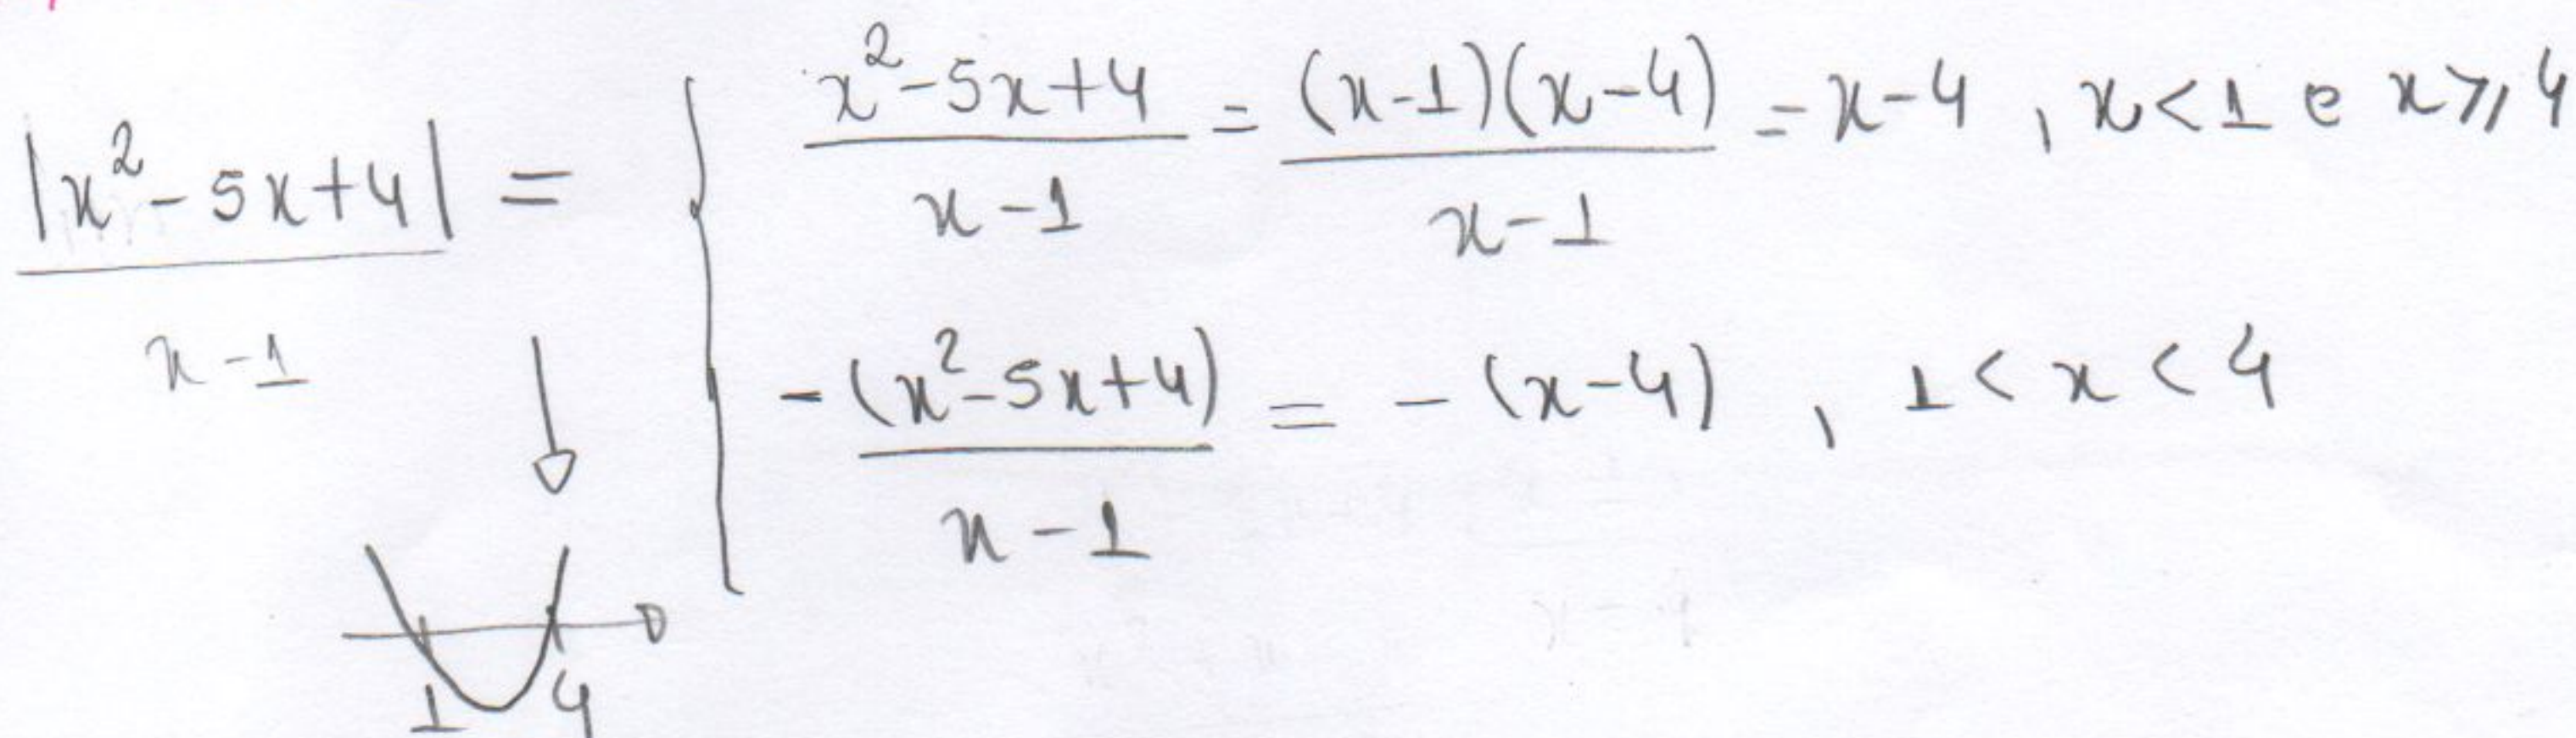 |x²-5x+4| / x-1 = { x²-5x+4 / x-1 = (x-1)(x-4) / x-1 = x-4 , x<1 e x⩾4
-(x²-5x+4) / x-1 = -(x-4) , 1<x<4
1 4